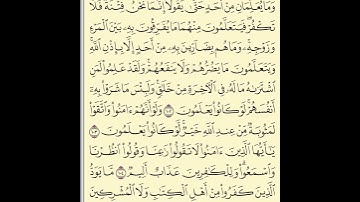 وَمَا يُعَلِّمَانِ مِنْ أَحَدٍ حَتَّىٰ يَقُولَا إِنَّمَا نَحْنُ فِتْنَةٌ فَلَا
تَكْفُرْ فَيَتَعَلَّمُونَ مِنْهُمَا مَا يُفَرِّقُونَ بِهِۦ بَيْنَ ٱلْمَرْءِ
وَزَوْجِهِۦ وَمَا هُم بِضَآرِّينَ بِهِۦ مِنْ أَحَدٍ إِلَّا بِإِذْنِ ٱللَّهِ
وَيَتَعَلَّمُونَ مَا يَضُرُّهُمْ وَلَا يَنفَعُهُمْ وَلَقَدْ عَلِمُوا۟ لَمَنِ
ٱشْتَرَىٰهُ مَا لَهُۥ فِى ٱلْـَٔاخِرَةِ مِنْ خَلَٰقٍ وَلَبِئْسَ مَا شَرَوْا۟ بِهِۦٓ
أَنفُسَهُمْ لَوْ كَانُوا۟ يَعْلَمُونَ ١٠٢ وَلَوْ أَنَّهُمْ ءَامَنُوا۟ وَٱتَّقَوْا۟
لَمَثُوبَةٌ مِّنْ عِندِ ٱللَّهِ خَيْرٌ لَّوْ كَانُوا۟ يَعْلَمُونَ ١٠٣
يَٰٓأَيُّهَا ٱلَّذِينَ ءَامَنُوا۟ لَا تَقُولُوا۟ رَٰعِنَا وَقُولُوا۟ ٱنظُرْنَا
وَٱسْمَعُوا۟ وَلِلْكَٰفِرِينَ عَذَابٌ أَلِيمٌ ١٠٤ مَّا يَوَدُّ
ٱلَّذِينَ كَفَرُوا۟ مِنْ أَهْلِ ٱلْكِتَٰبِ وَلَا ٱلْمُشْرِكِينَ